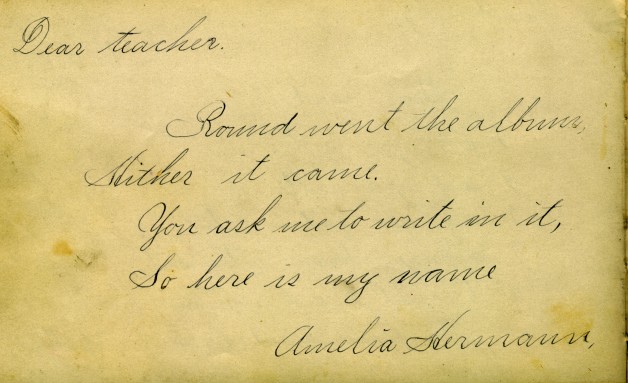 Dear teacher.
Round went the album,
Hither it came.
You ask me to write in it,
So here is my name
Amelia Hermann,